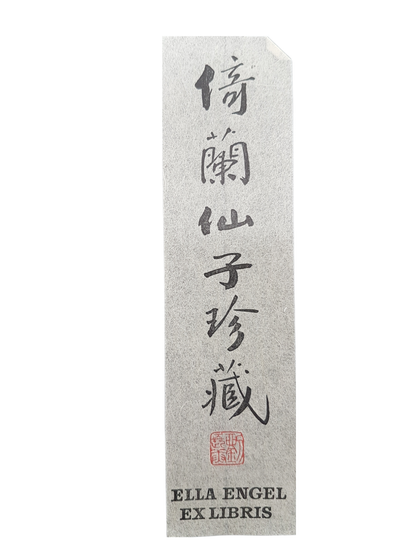 倚蘭仙子珍藏
ELLA ENGEL
EX LIBRIS